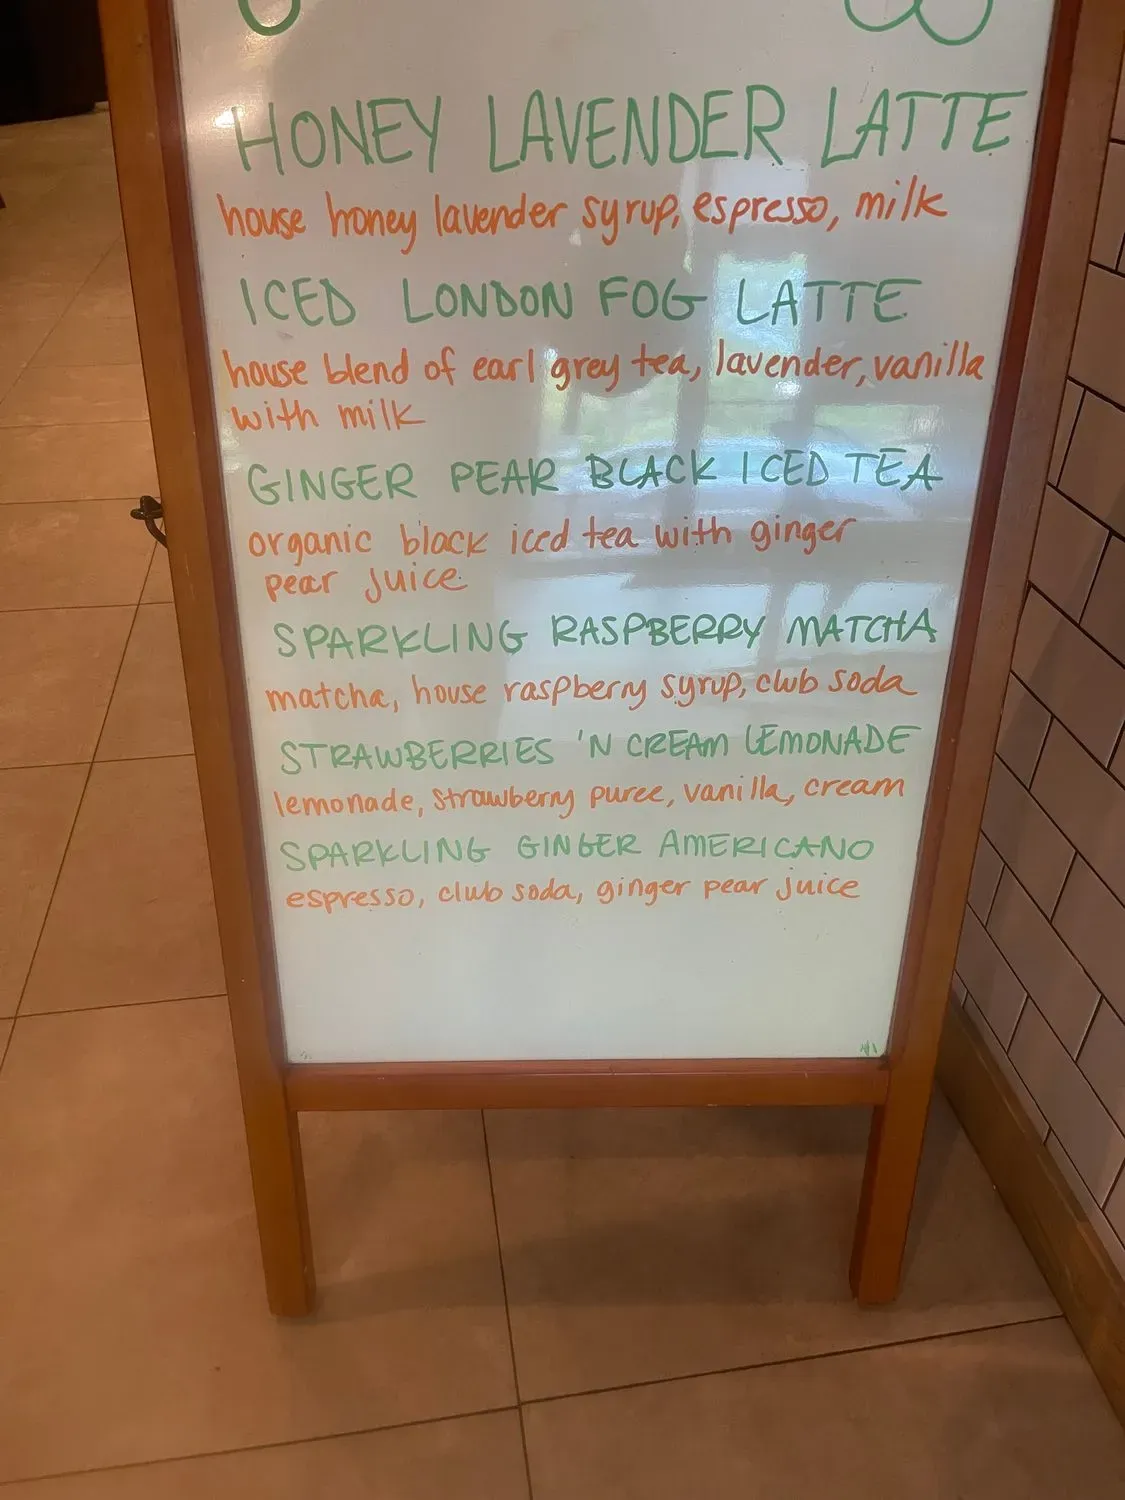 HONEY LAVENDER LATTE
house honey lavender syrup, espresso, milk
ICED LONDON FOG LATTE
house blend of earl grey tea, lavender, vanilla
with milk
GINGER PEAR BLACK ICED TEA
organic black iced tea with ginger
pear juice
SPARKLING RASPBERRY MATCHA
matcha, house raspberry syrup, club soda
STRAWBERRIES 'N CREAM LEMONADE
lemonade, strawberry puree, vanilla, cream
SPARKLING GINGER AMERICANO
espresso, club soda, ginger pear juice